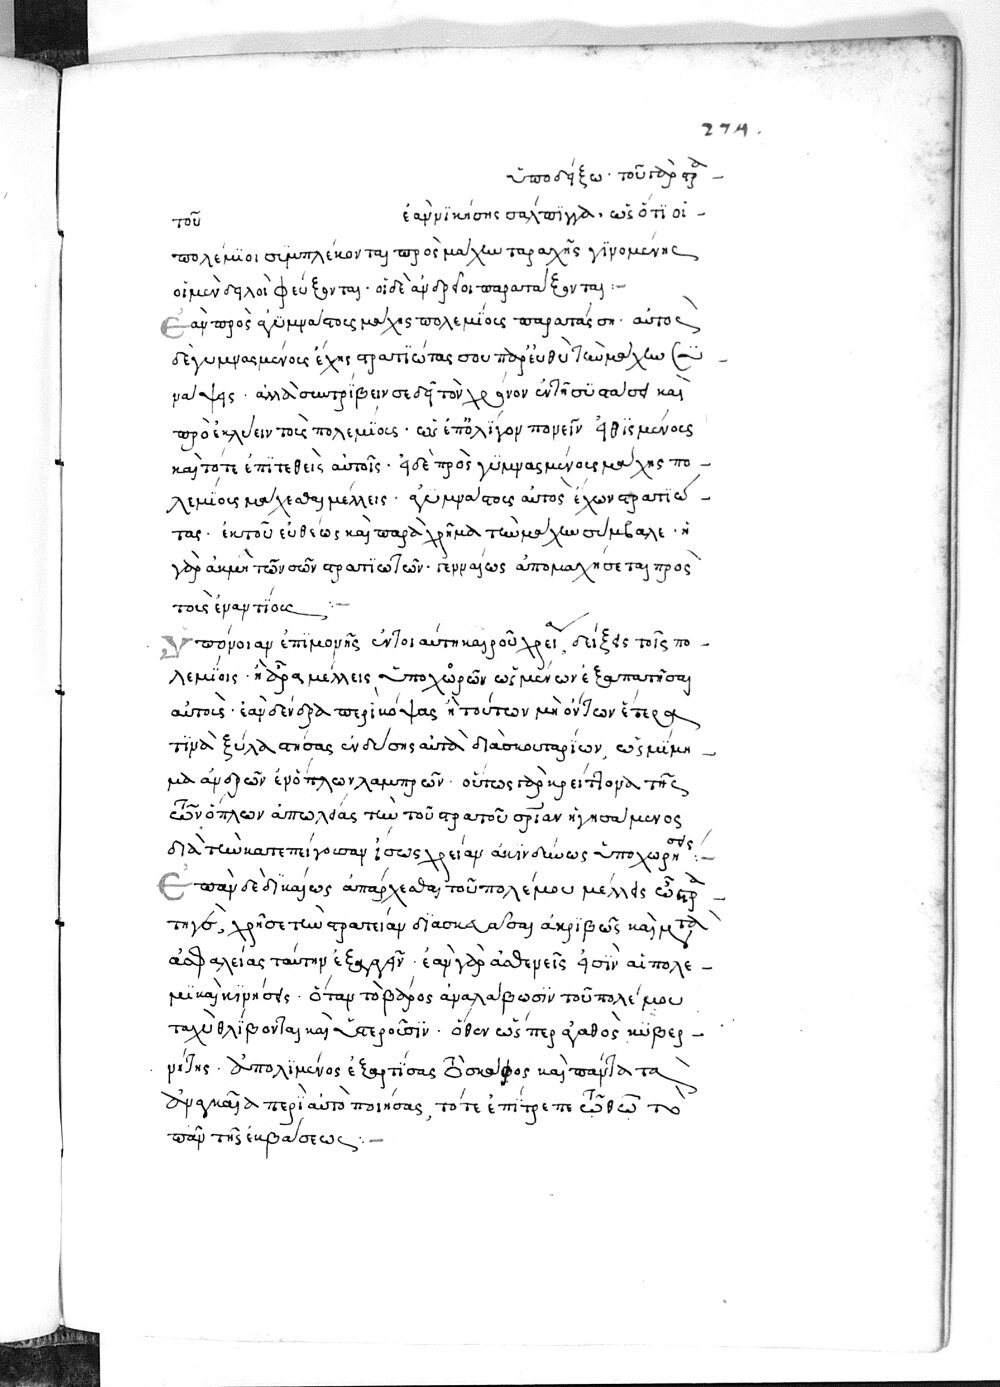 274.
ὑποδείξω· τοῦ γὰρ
τοῦ ἐὰν νικήσης σαλπίγγα, ὡς ὅτι οἱ
πολέμιοι συμπλέκονται πρὸς μάχην ταραχῆς γινομένης
οἱ μὲν δειλοὶ φεύξονται· οἱ δὲ ἀνδρεῖοι παρατάξονται:~
Ἐὰν πρὸς ἀγυμνάστους μάχης πολεμίους παρατάσση· αὐτὸς
δὲ γυμνασμένους ἔχης στρατιώτας σου παρευθὺ τὴν μάχην
ἀλλὰ συντρίβειν σε δεῖ τὸν χρόνον ἐν τῆ συστάσει καὶ
προεκλύειν τοὺς πολεμίους· ὡς ἐπ' ὀλίγον πονεῖν εἰθισμένους
καὶ τότε ἐπιτεθεὶς αὐτοῖς· εἰ δὲ πρὸς γυμνασμένους μάχης πο-
λεμίους μάχεσθαι μέλλεις· ἀγυμνάστους αὐτὸς ἔχων στρατιώ-
τας· ἐκ τοῦ εὐθέως καὶ παρὰ χρῆμα τὴν μάχην σύμβαλε· ἡ
γὰρ ἀκμὴ τῶν σῶν στρατιωτῶν· γενναίως ἀπομαχήσεται πρὸς
τοὺς ἐναντίους :~
Ὑπόνοιαν ἐπιμονῆς ἐν τοιαύτη καιροῦ χρεία, δείξεις τοῖς πο-
λεμίοις· ἡ ἄρα μέλλεις ὑποχωρῶν ὡς μένων ἐξαπατῆσαι
αὐτούς· ἐὰν δένδρα περικόψας ἢ τούτων μὴ ὄντων ἕτερα
τινὰ ξύλα στήσας ἐνδύσης αὐτὰ διὰ σκουταρίων, ὡς μίμη-
μα ἀνδρῶν ἐνόπλων λαμπρῶν· οὕτως γὰρ κρείττονα τῆς
τῶν ὅπλων ἀπωλείας τὴν τοῦ στρατοῦ σρίαν ἡγησάμενος
διὰ τὴν κατεπείγουσαν ἴσως χρείαν ἀκινδύνως ὑποχωρήσεις :~
Ἐπὰν δὲ δικαίως ἀπάρχεσθαι τοῦ πολέμου μέλλεις ὦ στρα-
τηγέ, χρῆσε τὴν στρατείαν διασκευάσαι ἀκριβῶς καὶ μετὰ
ἀσφαλείας ταύτην ἐξαγαγεῖν· ἐὰν γὰρ ἀσθενεῖς εἰσὶν αἱ πολε-
μικαὶ κινήσεις· ὅταν τὸ βάρος ἀναλάβωσιν τοῦ πολέμου
ταχὺ θλίβονται καὶ
ὅθεν ὥσπερ ἀγαθὸς κυβερ-
νήτης· ἀπὸ λιμένος ἐξαρτίσας τὸ σκάφος καὶ πάντα τὰ
ἀναγκαῖα περὶ αὐτὸ ποιήσας, τότε ἐπίτρεπε τῶ θεῶ τὸ
πᾶν τῆς ἐκβάσεως :~